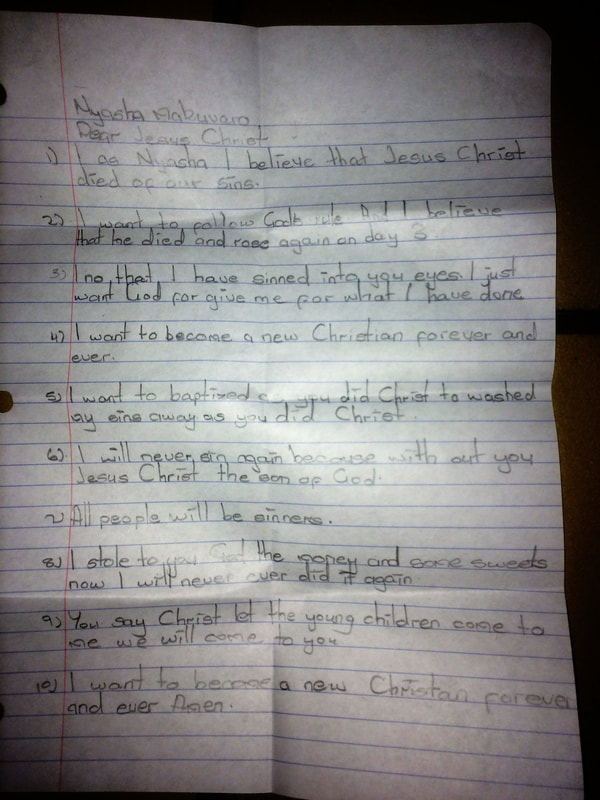 Nyasha Mabuvaro
Dear Jesus Christ
1) I as Nyasha I believe that Jesus Christ
died of our sins.
2) I want to follow Gods rule And I believe
that he died and rose again on day 3
3) I no that I have sinned into you eyes. I just
want God for give me for what I have done
4) I want to become a new Christian forever and
ever.
5) I want to baptized as you did Christ to washed
my sins away as you did Christ.
6) I will never sin again because with out you
Jesus Christ the son of God.
7) All people will be sinners.
8) I stole to you God the money and some sweets
now I will never ever did it again
9) You say Christ let the young children come to
me we will come to you
10) I want to become a new Christian forever
and ever Amen.